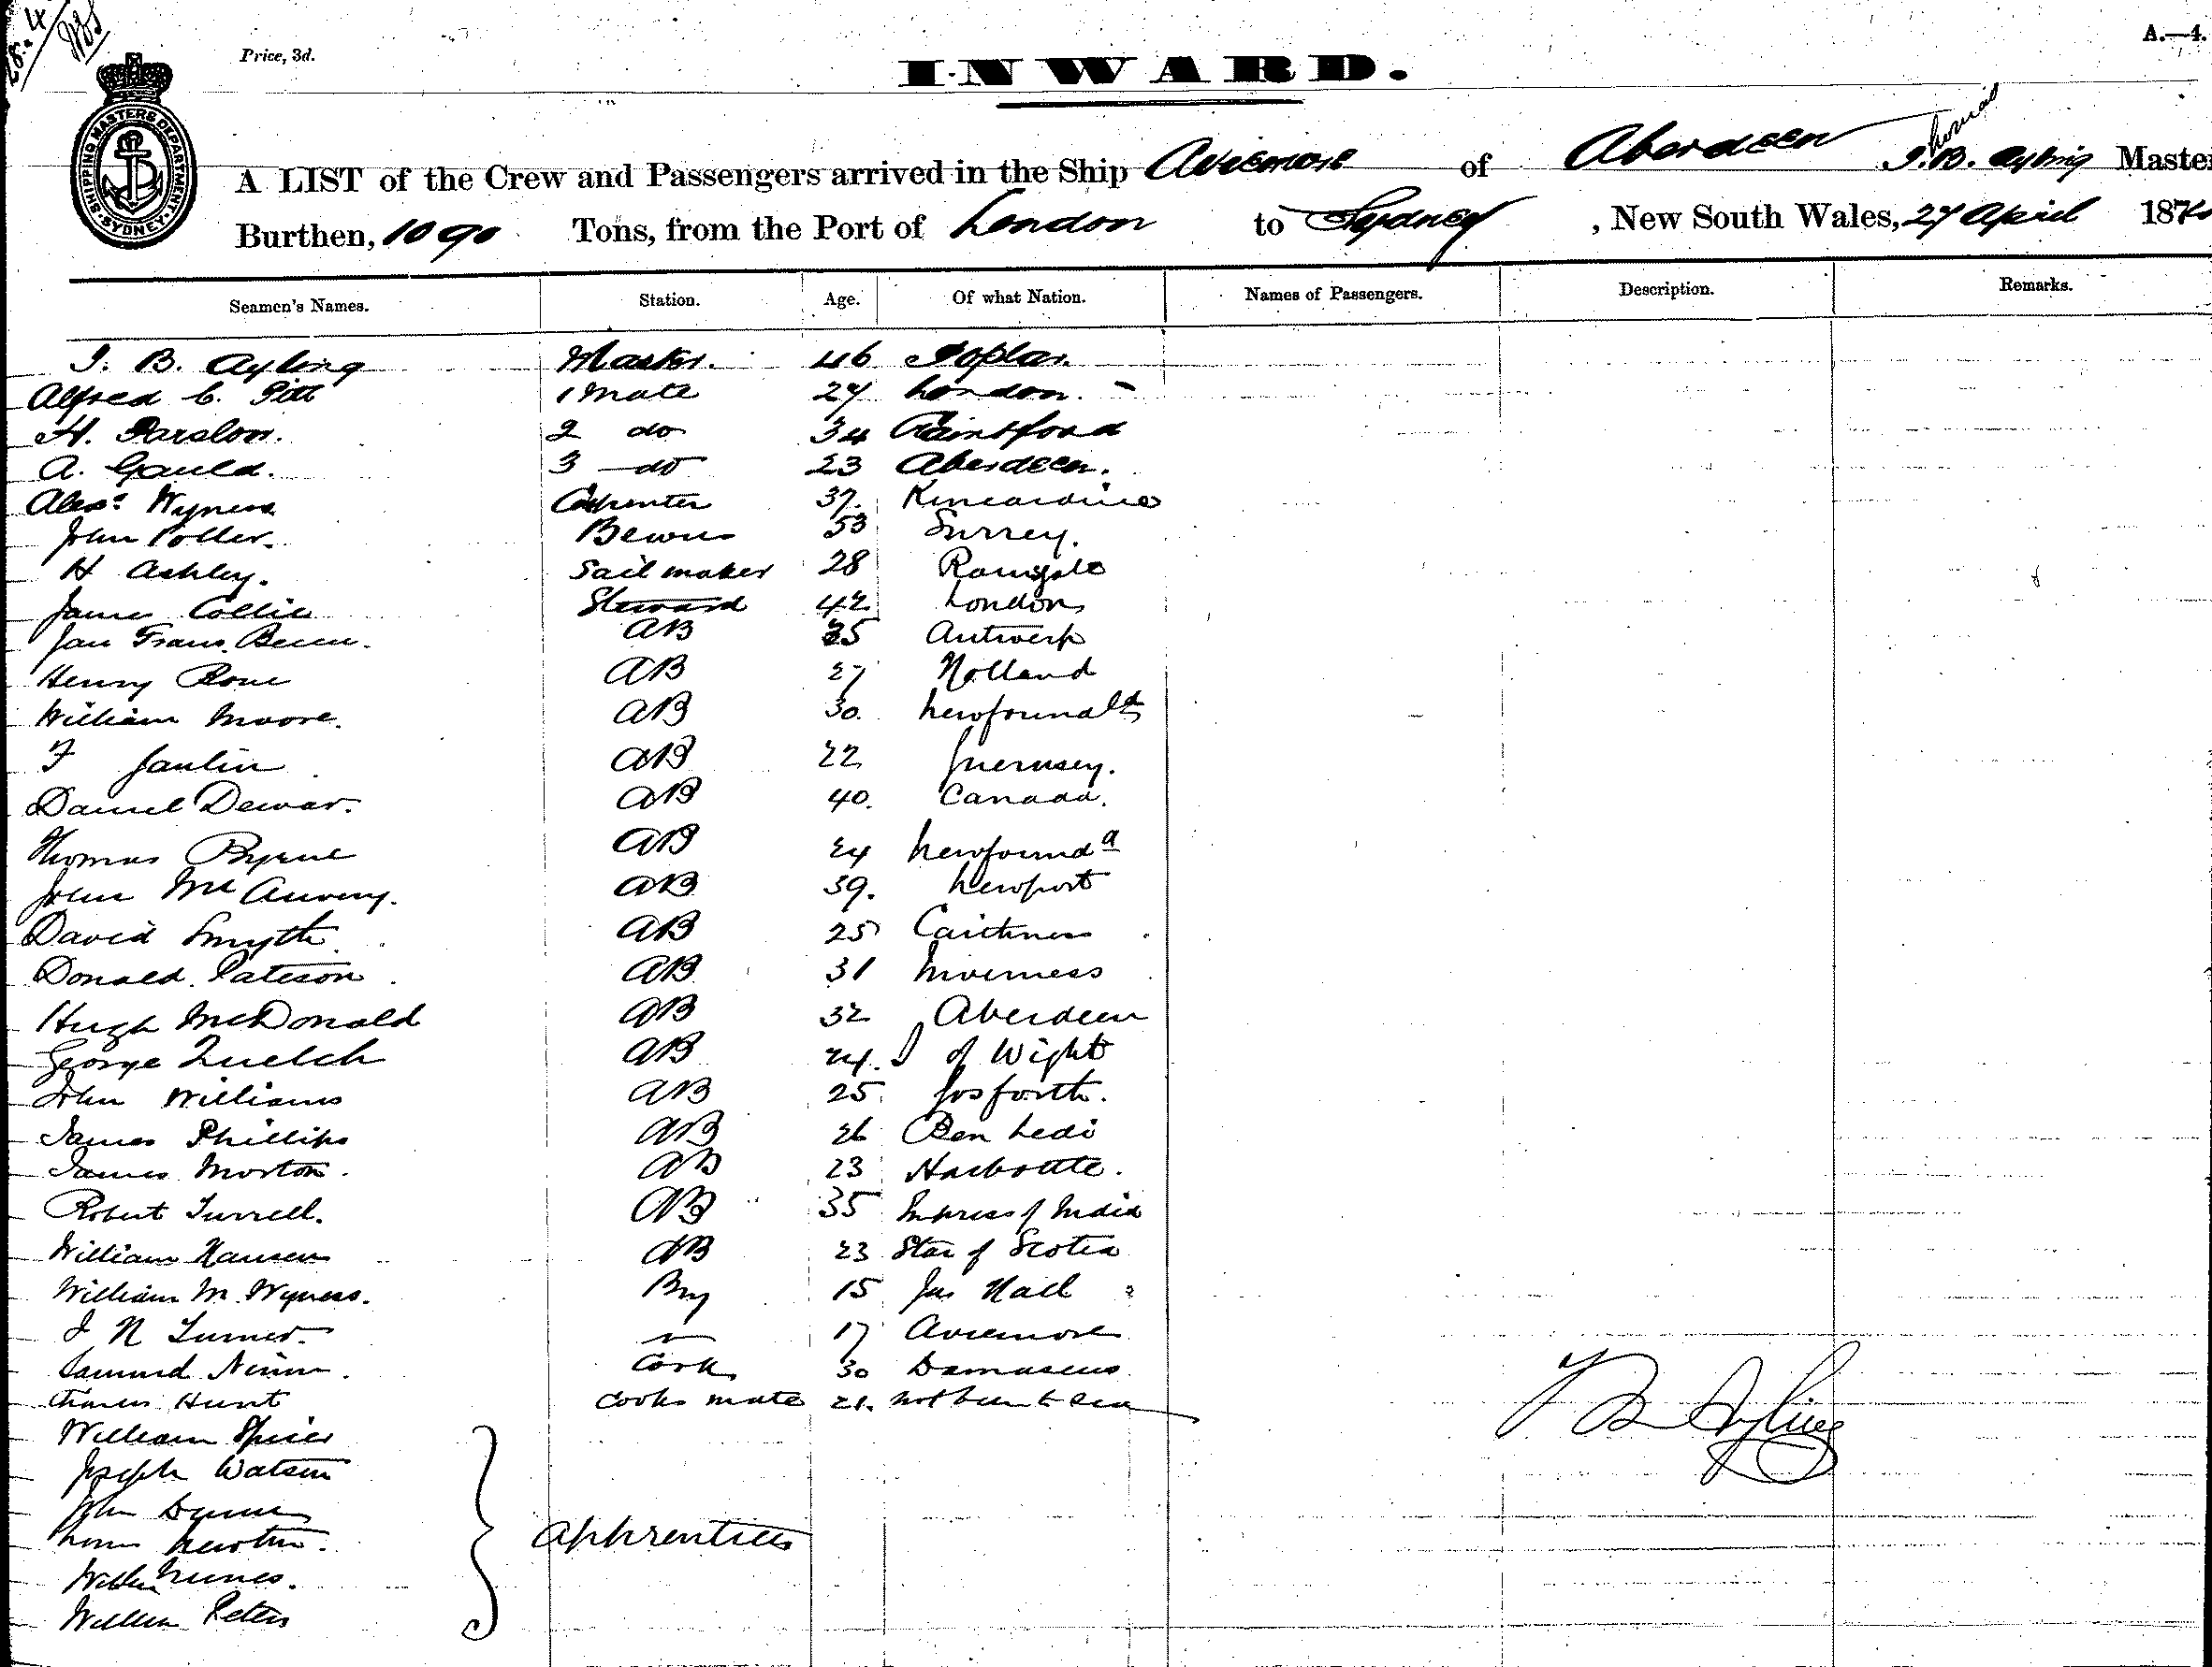 28.4
Price, 3d.
A.—4.
INWARD.
SHIPPING MASTERS DEPARTMENT SYDNEY
Thomas
A LIST of the Crew and Passengers arrived in the Ship Aviemore of Aberdeen T. B. Ayling Master
Burthen, 1090 Tons, from the Port of London to Sydney, New South Wales, 27 April 187
Seamen's Names. Station. Age. Of what Nation. Names of Passengers. Description. Remarks.
T. B. Ayling Master. 46 Poplar.
Alfred C. Pitt 1 Mate 27 London.
H. Parslow. 2 do 34
A. Gauld. 3 do 23 Aberdeen.
Alexr. Wyness Carpenter 37. Kincardine
John Potter. 53 Surrey.
H Ashley. Sail maker 28 Ramsgate
James Collie Steward 42 London
Jan Frans. AB 35 Antwerp
Henry AB 27 Holland
William Moore. AB 30. Newfoundld
F AB 22 Guernsey.
Daniel Dewar. AB 40. Canada.
Thomas Byrne AB 24 Newfound
John Mc AB 39. Newport
David Smyth AB 25 Caithness
Donald Pateson AB 31 Inverness
Hugh McDonald AB 32 Aberdeen
George Quelch AB 24. I of Wight
John Williams AB 25 Gosforth.
James Phillips AB 26 Ben Ledi
James Morton. AB 23
Robert Turrell. AB 35 Empress of India
William Hansen AB 23 Star of Scotia
William M. Wyness. Boy 15 Jas Nail
J N Turner. 17 Aviemore
Samuel Cook 30 Damascus
Charles Hunt Cooks mate 21. not been to sea
T B Ayling
William Spicer
Joseph Watson
John
Newton.
Apprentices
William Peters